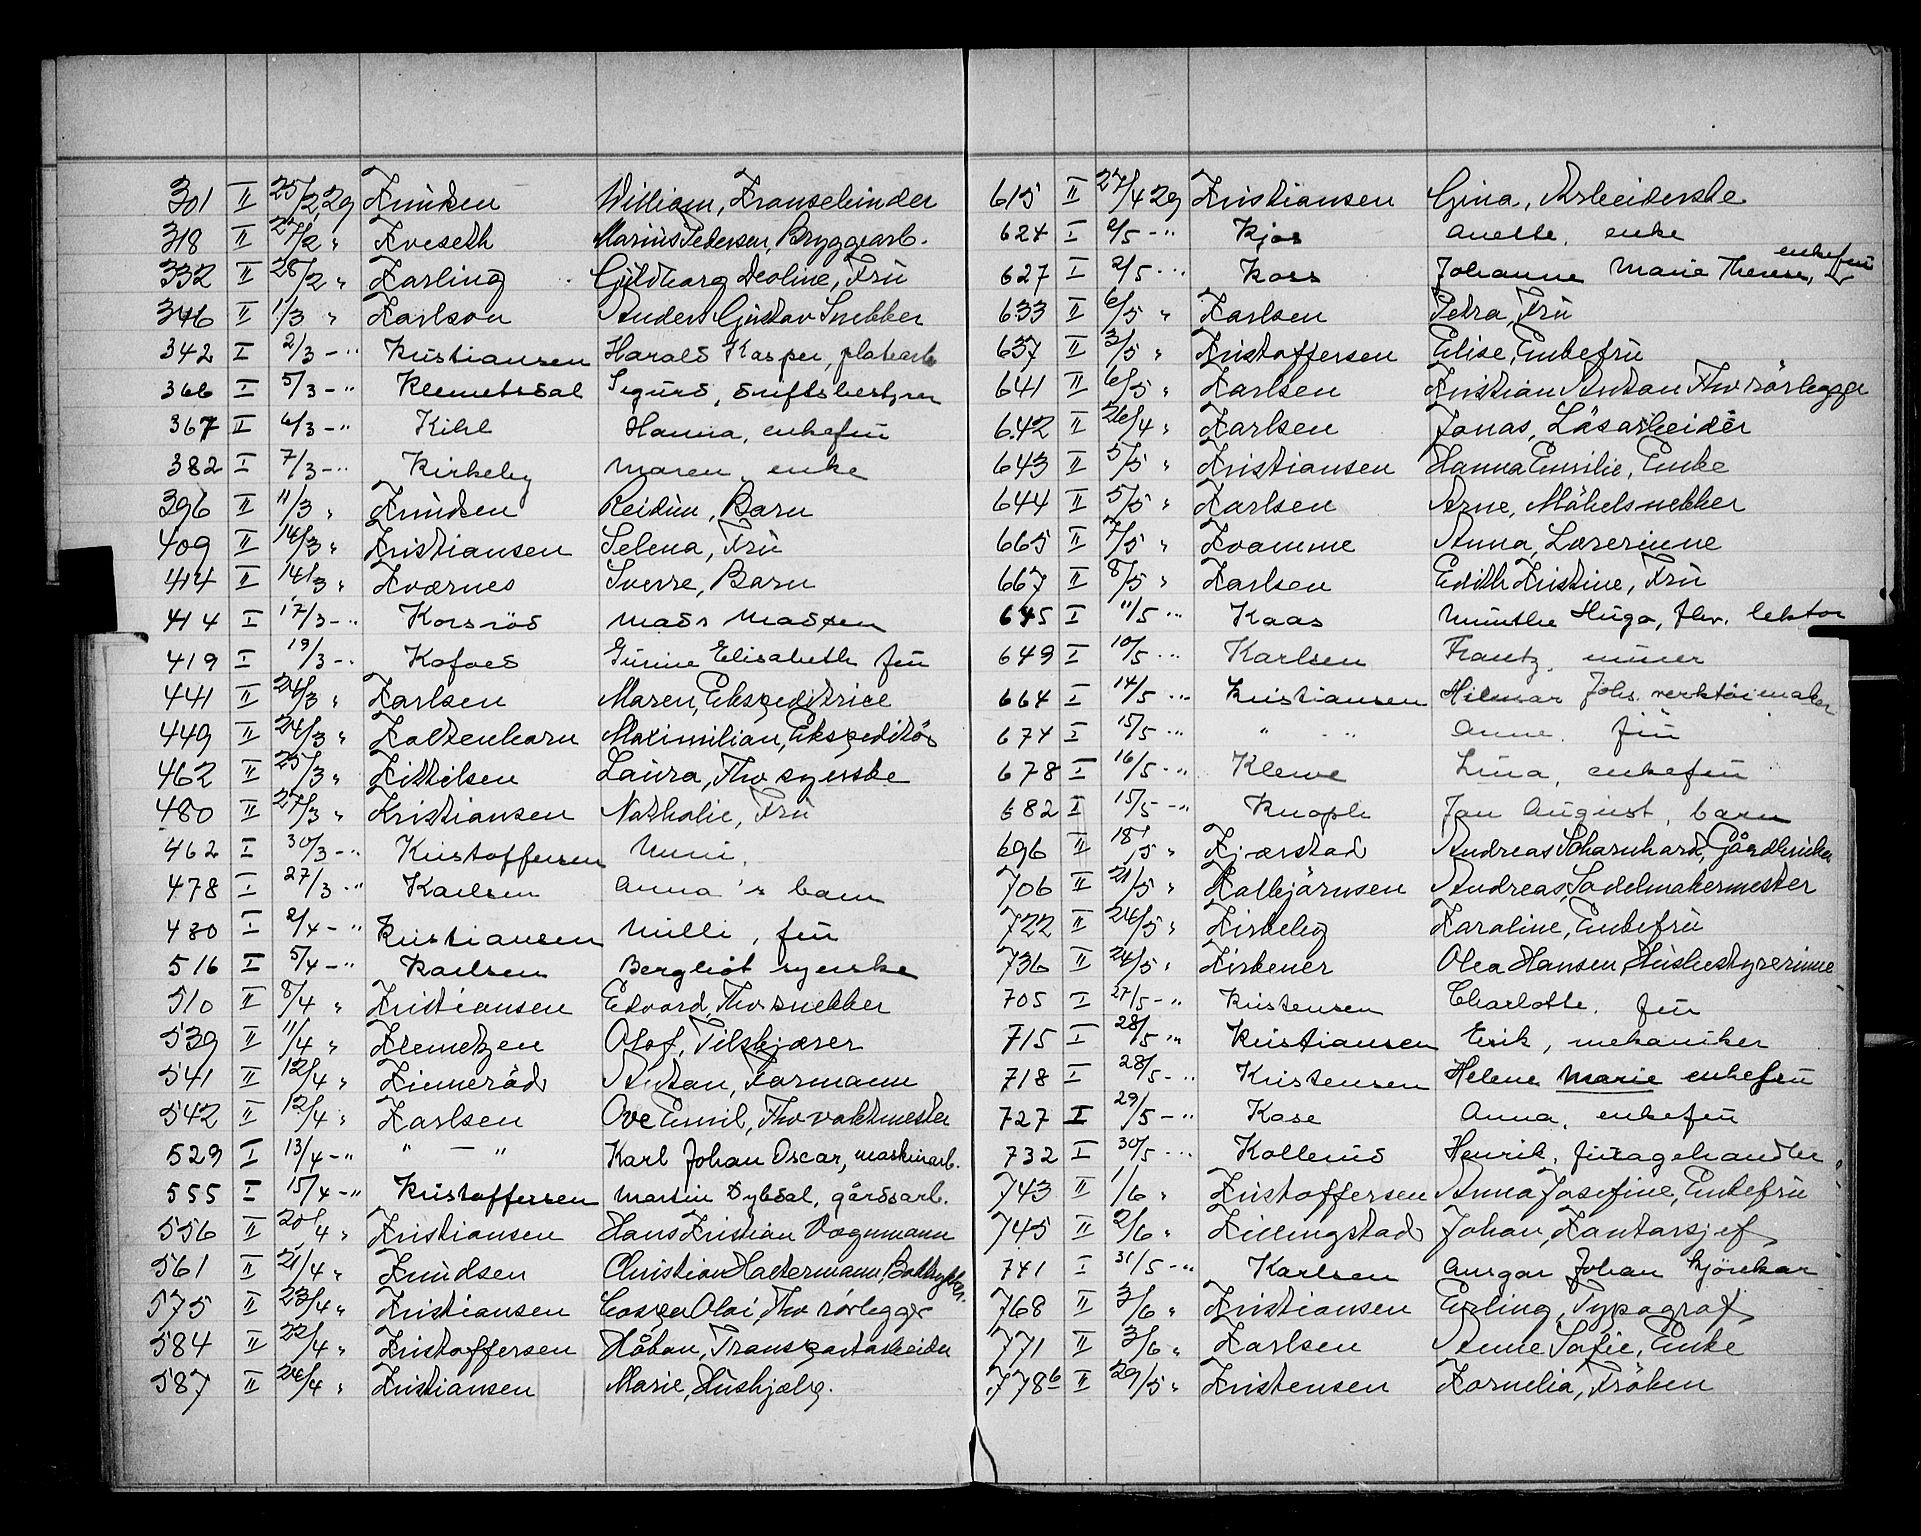 301 II 25/2 29 Knudsen William, Fransebinder
318 II 27/2 " Kveseth Marius Pedersen, Bryggearb.
332 II 28/2 " Karling Guldborg Deoline, Fru
346 II 1/3 " Karlson Anders Gustav Snekker
342 I 2/3 - " Kristiansen Harald Kasper, platearb
366 I 5/3 - " Klemetsdal Sigurd, driftsbestyrer
367 I 6/3 - " Kihl Hanna, enkefru
382 I 7/3 - " Kirkeby Maren, enke
396 II 11/3 " Knudsen Reidun, Barn
409 II 14/3 " Kristiansen Selena, Fru
414 II 14/3 " Kværnes Sverre, Barn
414 I 17/3 - " Korsröd Mads Madsen
419 I 19/3 - " Kofoed Gurine Elisabeth fru
441 II 24/3 " Karlsen Maren, Ekspeditrice
449 II 24/3 " Koltzenkorn Maximilian, Ekspeditör
462 II 25/3 " Kittilsen Laura, Fhv syerske
480 II 27/3 " Kristiansen Nathalie, Fru
462 I 30/3 - " Kristoffersen Unni,
478 I 27/3 - " Karlsen Anna's barn
480 I 2/4 - " Kristiansen Milli, fru
516 I 5/4 - " Karlsen Bergliot syerske
510 II 8/4 " Kristiansen Edvard, Fhv snekker
539 II 11/4 " Klemetzen Olof, Tilskjærer
541 II 12/4 " Kinneröd Anton, Formann
542 II 12/4 " Karlsen Ove Emil, Fhv vaktmester
529 I 13/4 - " " — " Karl Johan Oscar, maskinarb.
555 I 15/4 - " Kristoffersen Martin Dybdal, gårdsarb.
556 II 20/4 " Kristiansen Hans Kristian Vognmann
561 II 21/4 " Knudsen Christian Haltermann, Boktrykker.
575 II 23/4 " Kristiansen Casper Olai, Fhv rörlegger
584 II 22/4 " Kristoffersen Håkon, Transportarbeider
587 II 24/4 " Kristiansen Marie, Hushjelp.
615 II 27/4 29 Kristiansen Gina, Arbeiderske
624 I 2/5 - " Kjos Anette, enke
627 I 2/5 - " Koss Johanne Marie Therese, enkefru
633 II 6/5 " Karlsen Petra, Fru
637 II 3/5 " Kristoffersen Elise, Enkefru
641 II 6/5 " Karlsen Kristian Anton Fhv rörlegger
642 II 26/4 " Karlsen Jonas, Lösarbeider
643 II 5/5 " Kristiansen Hanna Emilie, Enke
644 II 5/5 " Karlsen Arne, Möbelsnekker
665 II 7/5 " Kvamme Anna, Lærerinne
667 II 8/5 " Karlsen Edith Kristine, Fru
645 I 11/5 - " Kaas Munthe Hugo, fhv. lektor
649 I 10/5 - " Karlsen Frantz, murer
664 I 14/5 - " Kristiansen Hilmar Johs. verktöimaker
674 I 15/5 - " " " Anne, fru
678 I 16/5 - " Klewe Lina, enkefru
682 I 15/5 - " Knoph Jan August, barn
696 II 18/5 " Kjærstad Andreas Scharnhard, Gårdbruker
706 II 21/5 " Kolbjörnsen Andreas, Sadelmakermester
722 II 24/5 " Kirkeby Karoline, Enkefru
736 II 24/5 " Kirkener Olea Hansen, Husbestyrerinne
705 I 27/5 - " Kristensen Charlotte, fru
715 I 28/5 - " Kristiansen Erik, mekaniker
718 I 28/5 - " Kristensen Helene Marie enkefru
727 I 29/5 - " Kase Anna, enkefru
732 I 30/5 - " Kollerud Henrik, furagehandler
743 II 1/6 " Kristoffersen Anna Josefine, Enkefru
745 II 2/6 " Killingstad Johan, Kontorsjef
741 I 31/5 - " Karlsen Ansgar Johan kjörekar
768 II 3/6 " Kristiansen Erling, Typograf
771 II 3/6 " Karlsen Anne Sofie, Enke
778b II 29/5 " Kristensen Kornelia, Fröken